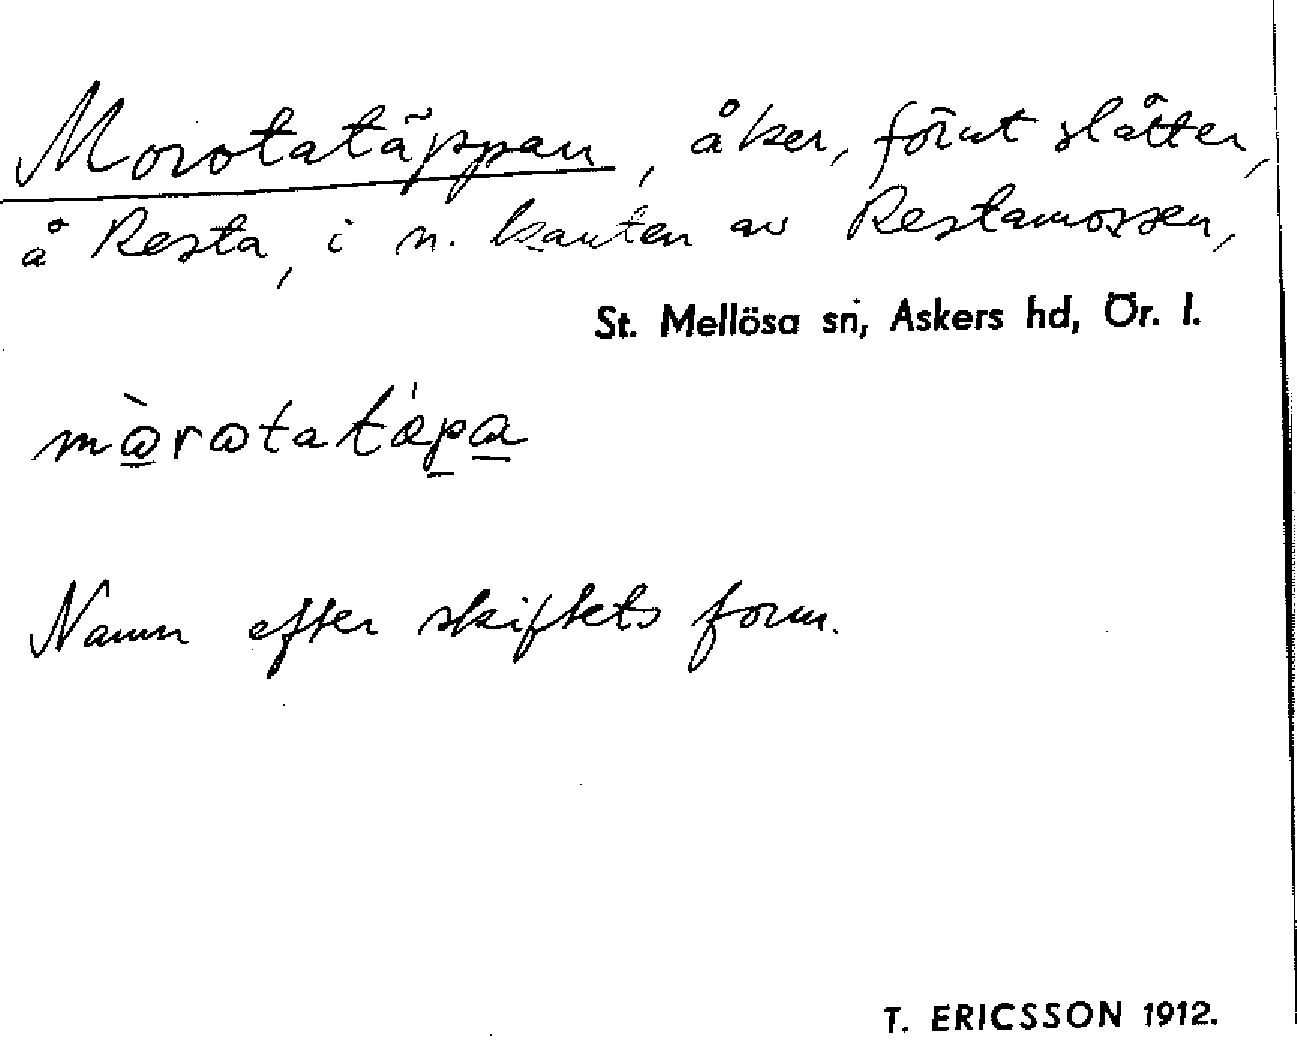 Morotatäppan, åker, förut slåtter,
å Resta, i n. kanten av Restamossen,
St. Mellösa sn, Askers hd, Ör. l.
Namn efter skiftets form.
T. ERICSSON 1912.